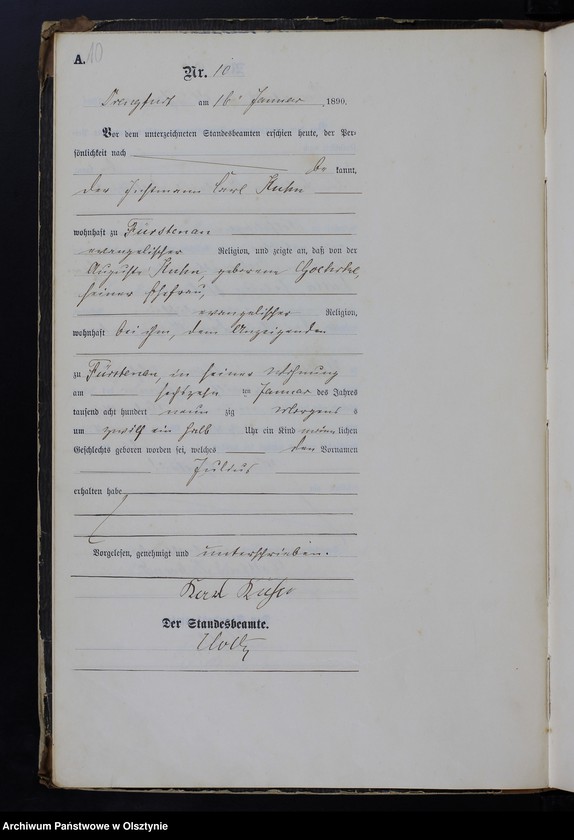 A. 10
Nr. 10
Drengfurt am 16 Januar 1890.
Vor dem unterzeichneten Standesbeamten erschien heute, der Per-
sönlichkeit nach
be kannt,
der Instmann Carl Kuhn
wohnhaft zu Fürstenau
evangelischer Religion, und zeigte an, daß von der
Auguste Kuhn, geborene
seiner Ehefrau,
evangelischer Religion,
wohnhaft bei ihm, dem Anzeigenden
zu Fürstenau, in seiner Wohnung
am sechszehn ten Januar des Jahres
tausend acht hundert neun zig Morgens
um zwölf ein halb Uhr ein Kind männ lichen
Geschlechts geboren worden sei, welches den Vornamen
Julius
erhalten habe
Vorgelesen, genehmigt und unterschrieben.
Karl Kuhn
Der Standesbeamte.
Archiwum Państwowe w Olsztynie